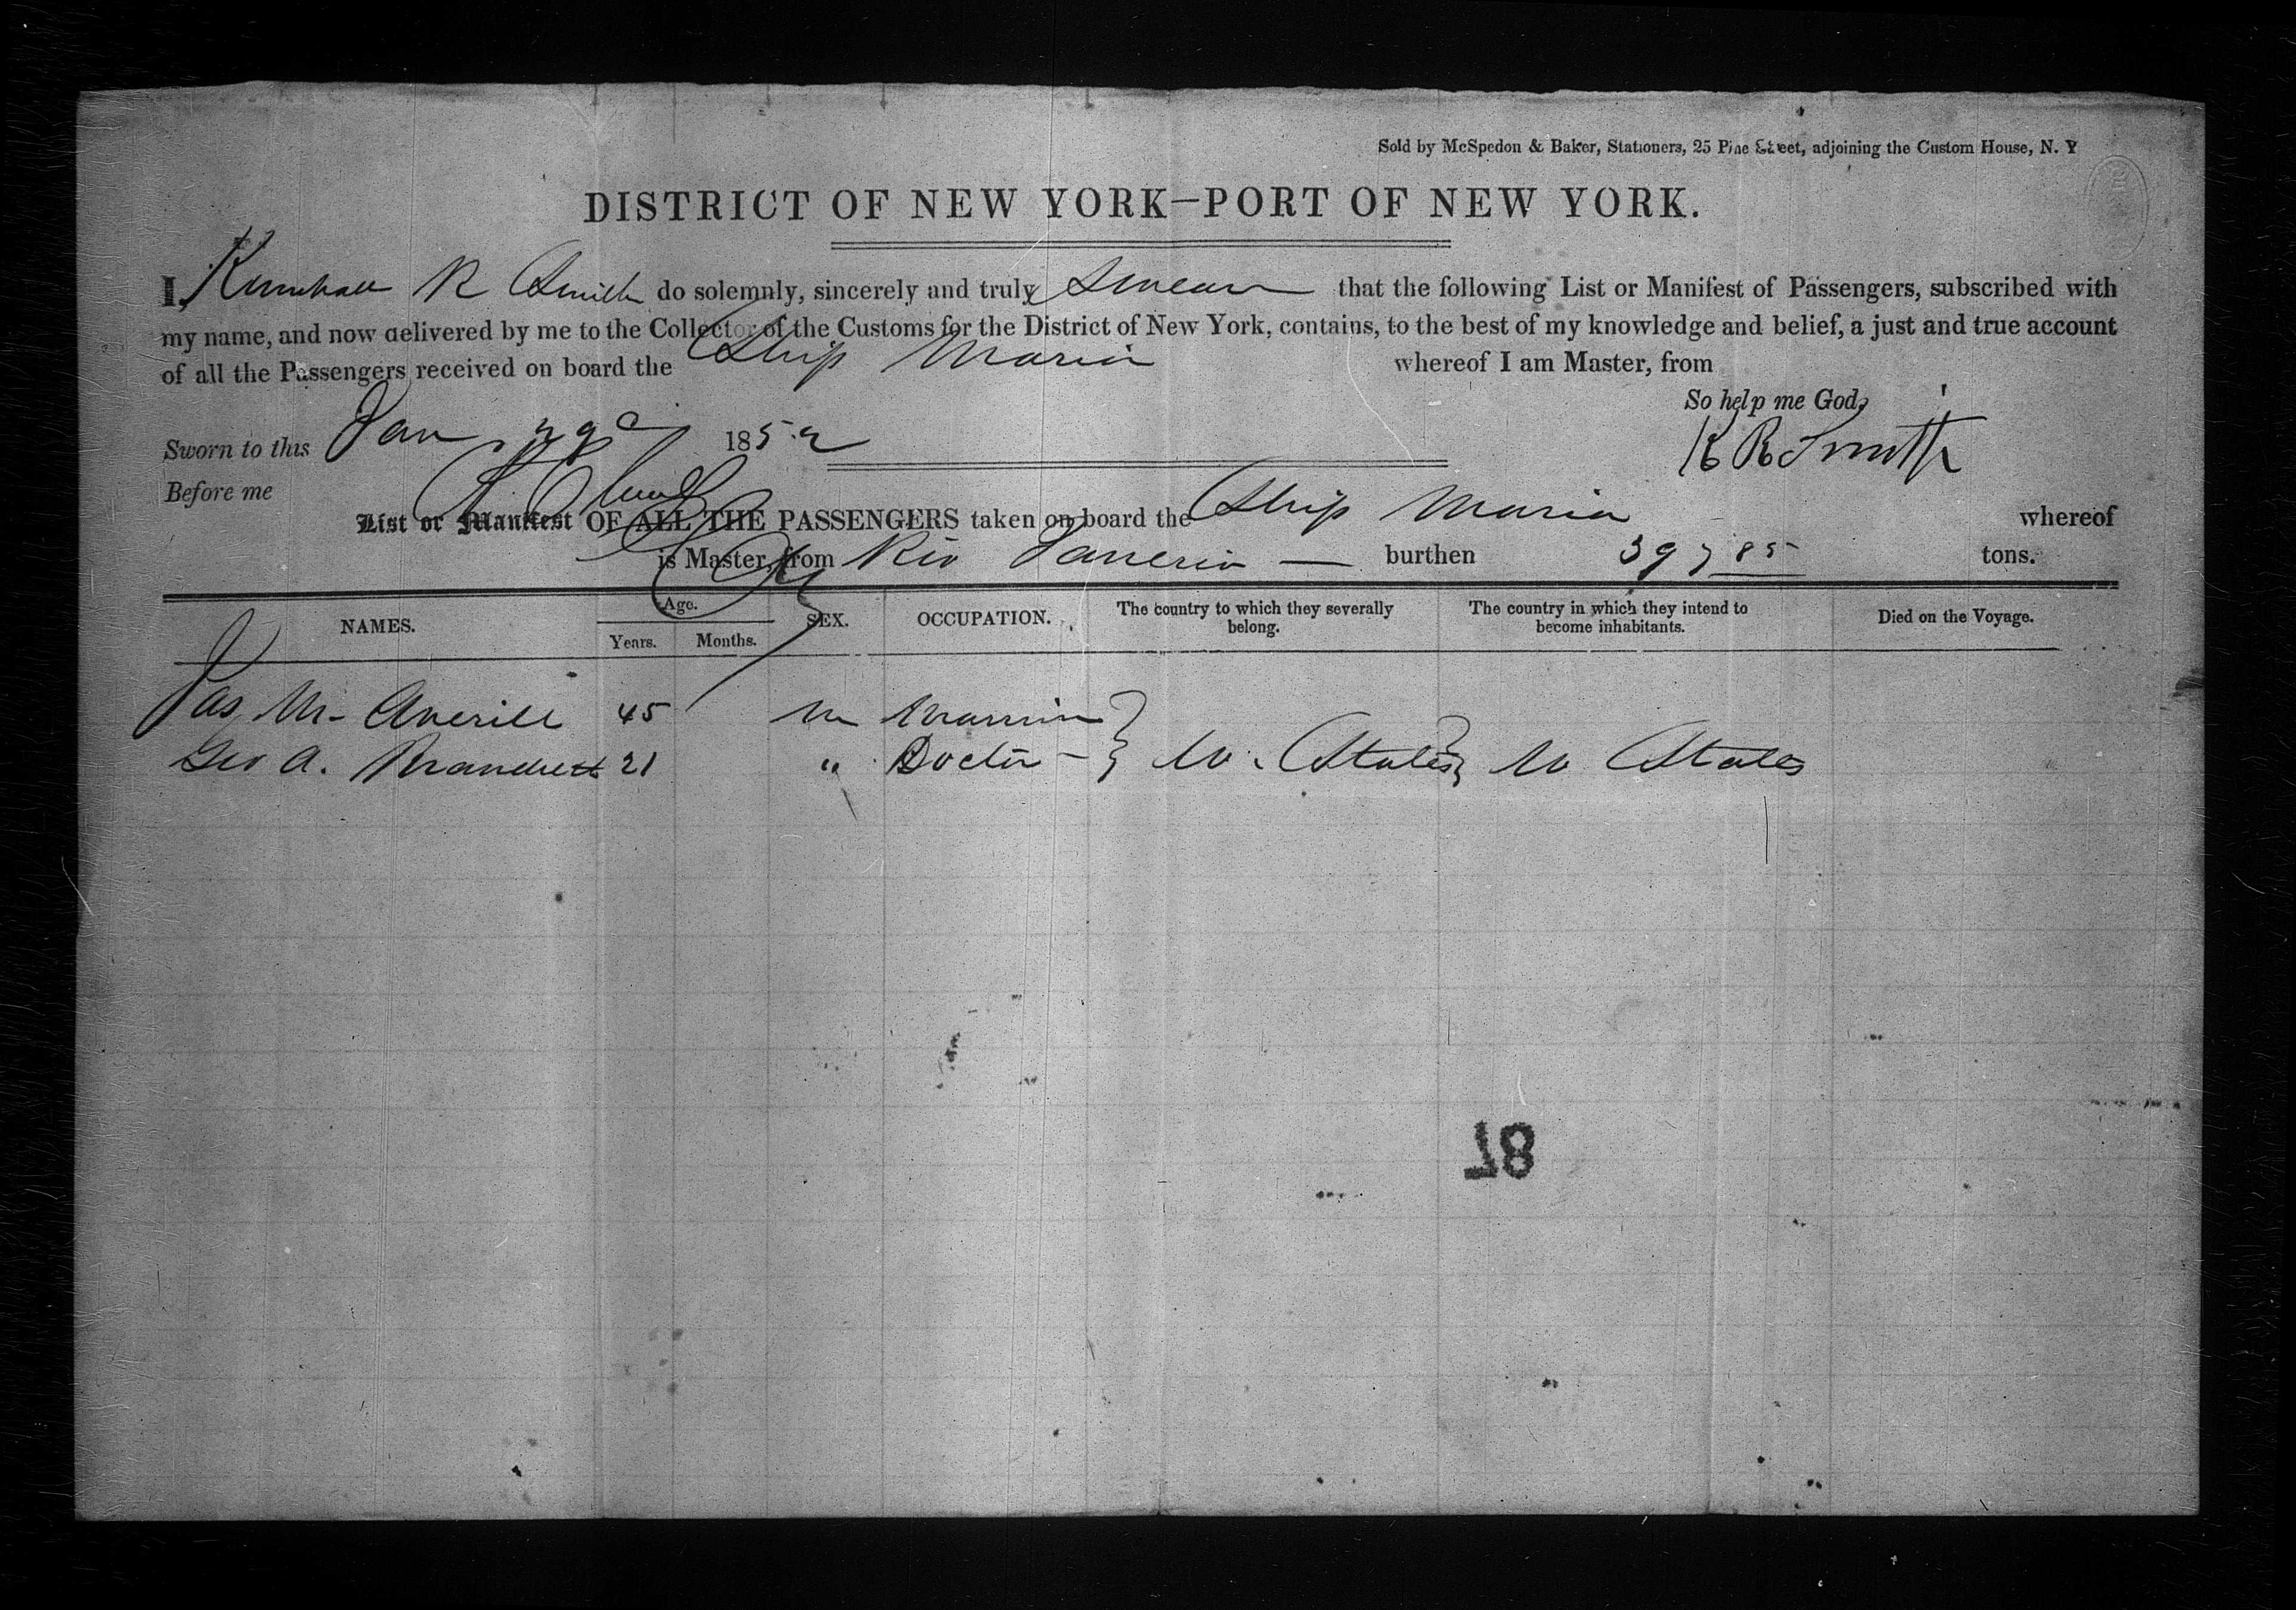 Sold by McSpedon & Baker, Stationers, 25 Pine Street, adjoining the Custom House, N. Y
DISTRICT OF NEW YORK—PORT OF NEW YORK.
I, Kimball R Smith do solemnly, sincerely and truly Swear that the following List or Manifest of Passengers, subscribed with
my name, and now delivered by me to the Collector of the Customs for the District of New York, contains, to the best of my knowledge and belief, a just and true account
of all the Passengers received on board the Ship Maria whereof I am Master, from
So help me God,
Sworn to this Jan 29 1852
K R Smith
Before me
List or Manifest OF ALL THE PASSENGERS taken on board the Ship Maria whereof
is Master, from Rio Janerio — burthen 397 85 tons.
NAMES. Age. Years. Months. SEX. OCCUPATION. The country to which they severally belong. The country in which they intend to become inhabitants. Died on the Voyage.
Jas M. Averill 45 m Marrin
Geo A. 21 " Doctor - U. States U States
87